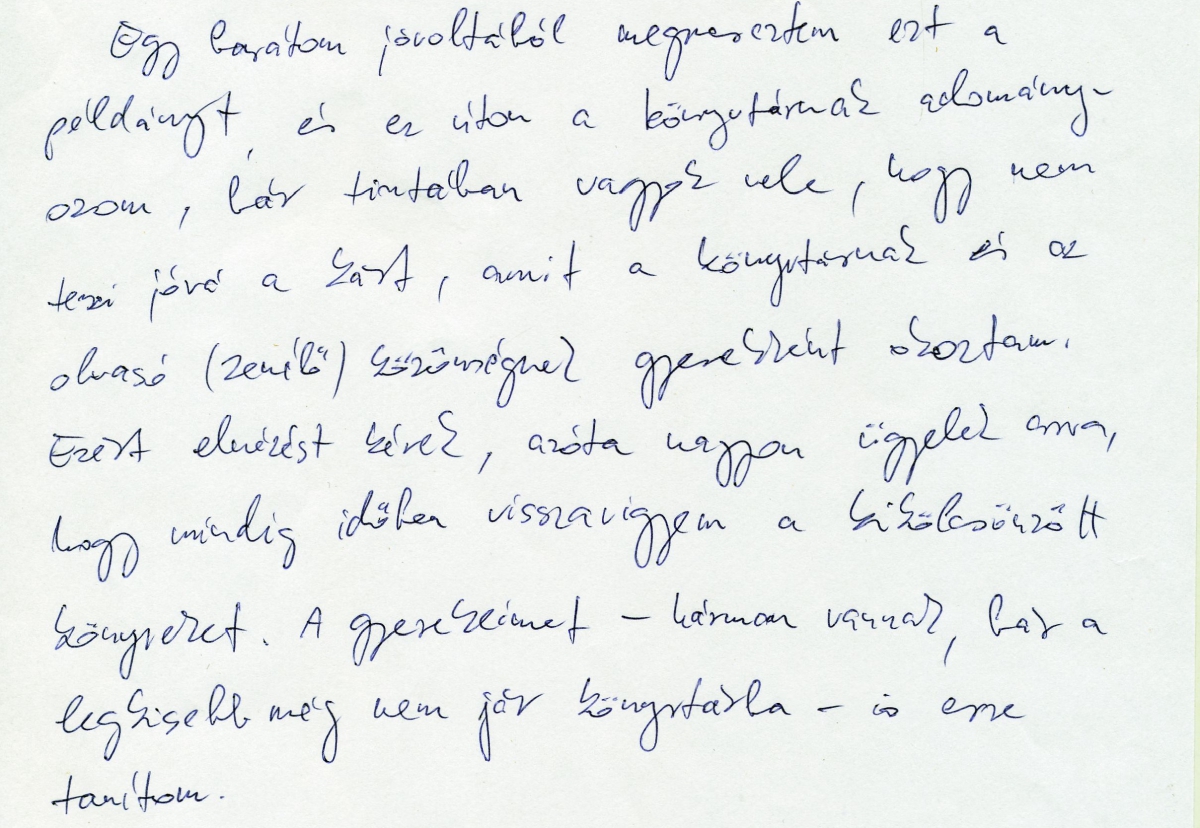 Egy barátom jóvoltából megszereztem ezt a
példányt, és ez úton a könyvtárnak adomány-
ozom, bár tisztában vagyok vele, hogy nem
teszi jóvá a kárt, amit a könyvtárnak és az
olvasó (zenélő) közönségnek gyerekként okoztam.
Ezért elnézést kérek, azóta nagyon ügyelek arra,
hogy mindig időben visszavigyem a kikölcsönzött
könyveket. A gyerekeimet – hárman vannak, bár a
legkisebb még nem jár könyvtárba – is erre
tanítom.